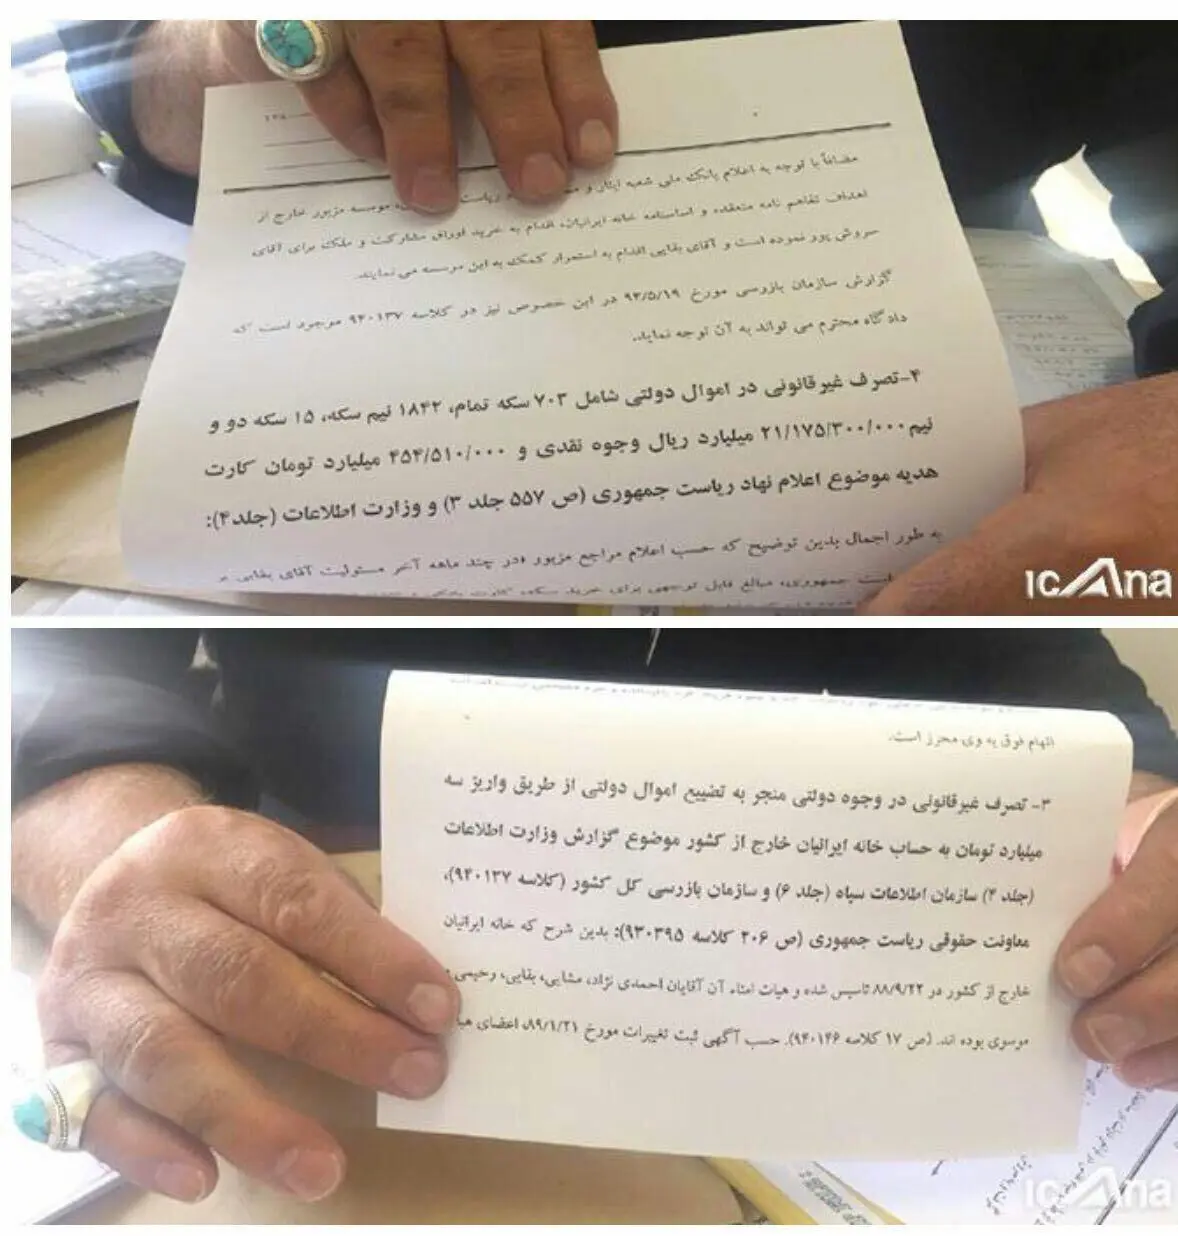 مضافاً با توجه به اعلام بانک ملی شعبه ایثار و ریاست موسسه مزبور خارج از
اهداف تفاهم نامه منعقده و اساسنامه خانه ایرانیان، اقدام به خرید اوراق مشارکت و ملک برای آقای
سروش پور نموده است و آقای بقایی اقدام به استمرار کمک به این موسسه می نمایند.
گزارش سازمان بازرسی مورخ ۹۳/۵/۱۹ در این خصوص نیز در کلاسه ۹۴۰۱۳۷ موجود است که
دادگاه محترم می تواند به آن توجه نماید.
۴-تصرف غیرقانونی در اموال دولتی شامل ۷۰۳ سکه تمام، ۱۸۴۲ نیم سکه، ۱۵ سکه دو و
نیم ۲۱/۱۷۵/۳۰۰/۰۰۰ میلیارد ریال وجوه نقدی و ۴۵۴/۵۱۰/۰۰۰ میلیارد تومان کارت
هدیه موضوع اعلام نهاد ریاست جمهوری (ص ۵۵۷ جلد ۳) و وزارت اطلاعات (جلد۴):
به طور اجمال بدین توضیح که حسب اعلام مراجع مزبور «در چند ماهه آخر مسئولیت آقای بقایی
جمهوری، مبالغ قابل توجهی برای خرید سکه، کارت
ICAna
اتهام فوق به وی محرز است.
۳- تصرف غیرقانونی در وجوه دولتی منجر به تضییع اموال دولتی از طریق واریز سه
میلیارد تومان به حساب خانه ایرانیان خارج از کشور موضوع گزارش وزارت اطلاعات
(جلد ۴) سازمان اطلاعات سپاه (جلد ۶) و سازمان بازرسی کل کشور (کلاسه ۹۴۰۱۳۷)،
معاونت حقوقی ریاست جمهوری (ص ۲۰۶ کلاسه ۹۳۰۳۹۵): بدین شرح که خانه ایرانیان
خارج از کشور در ۸۸/۹/۲۲ تاسیس شده و هیات امناء آن آقایان احمدی نژاد، مشایی، بقایی، رحیمی
موسوی بوده اند. (ص ۱۷ کلاسه ۹۴۰۱۴۶). حسب آگهی ثبت تغییرات مورخ ۸۹/۱/۲۱، اعضای
ICAna